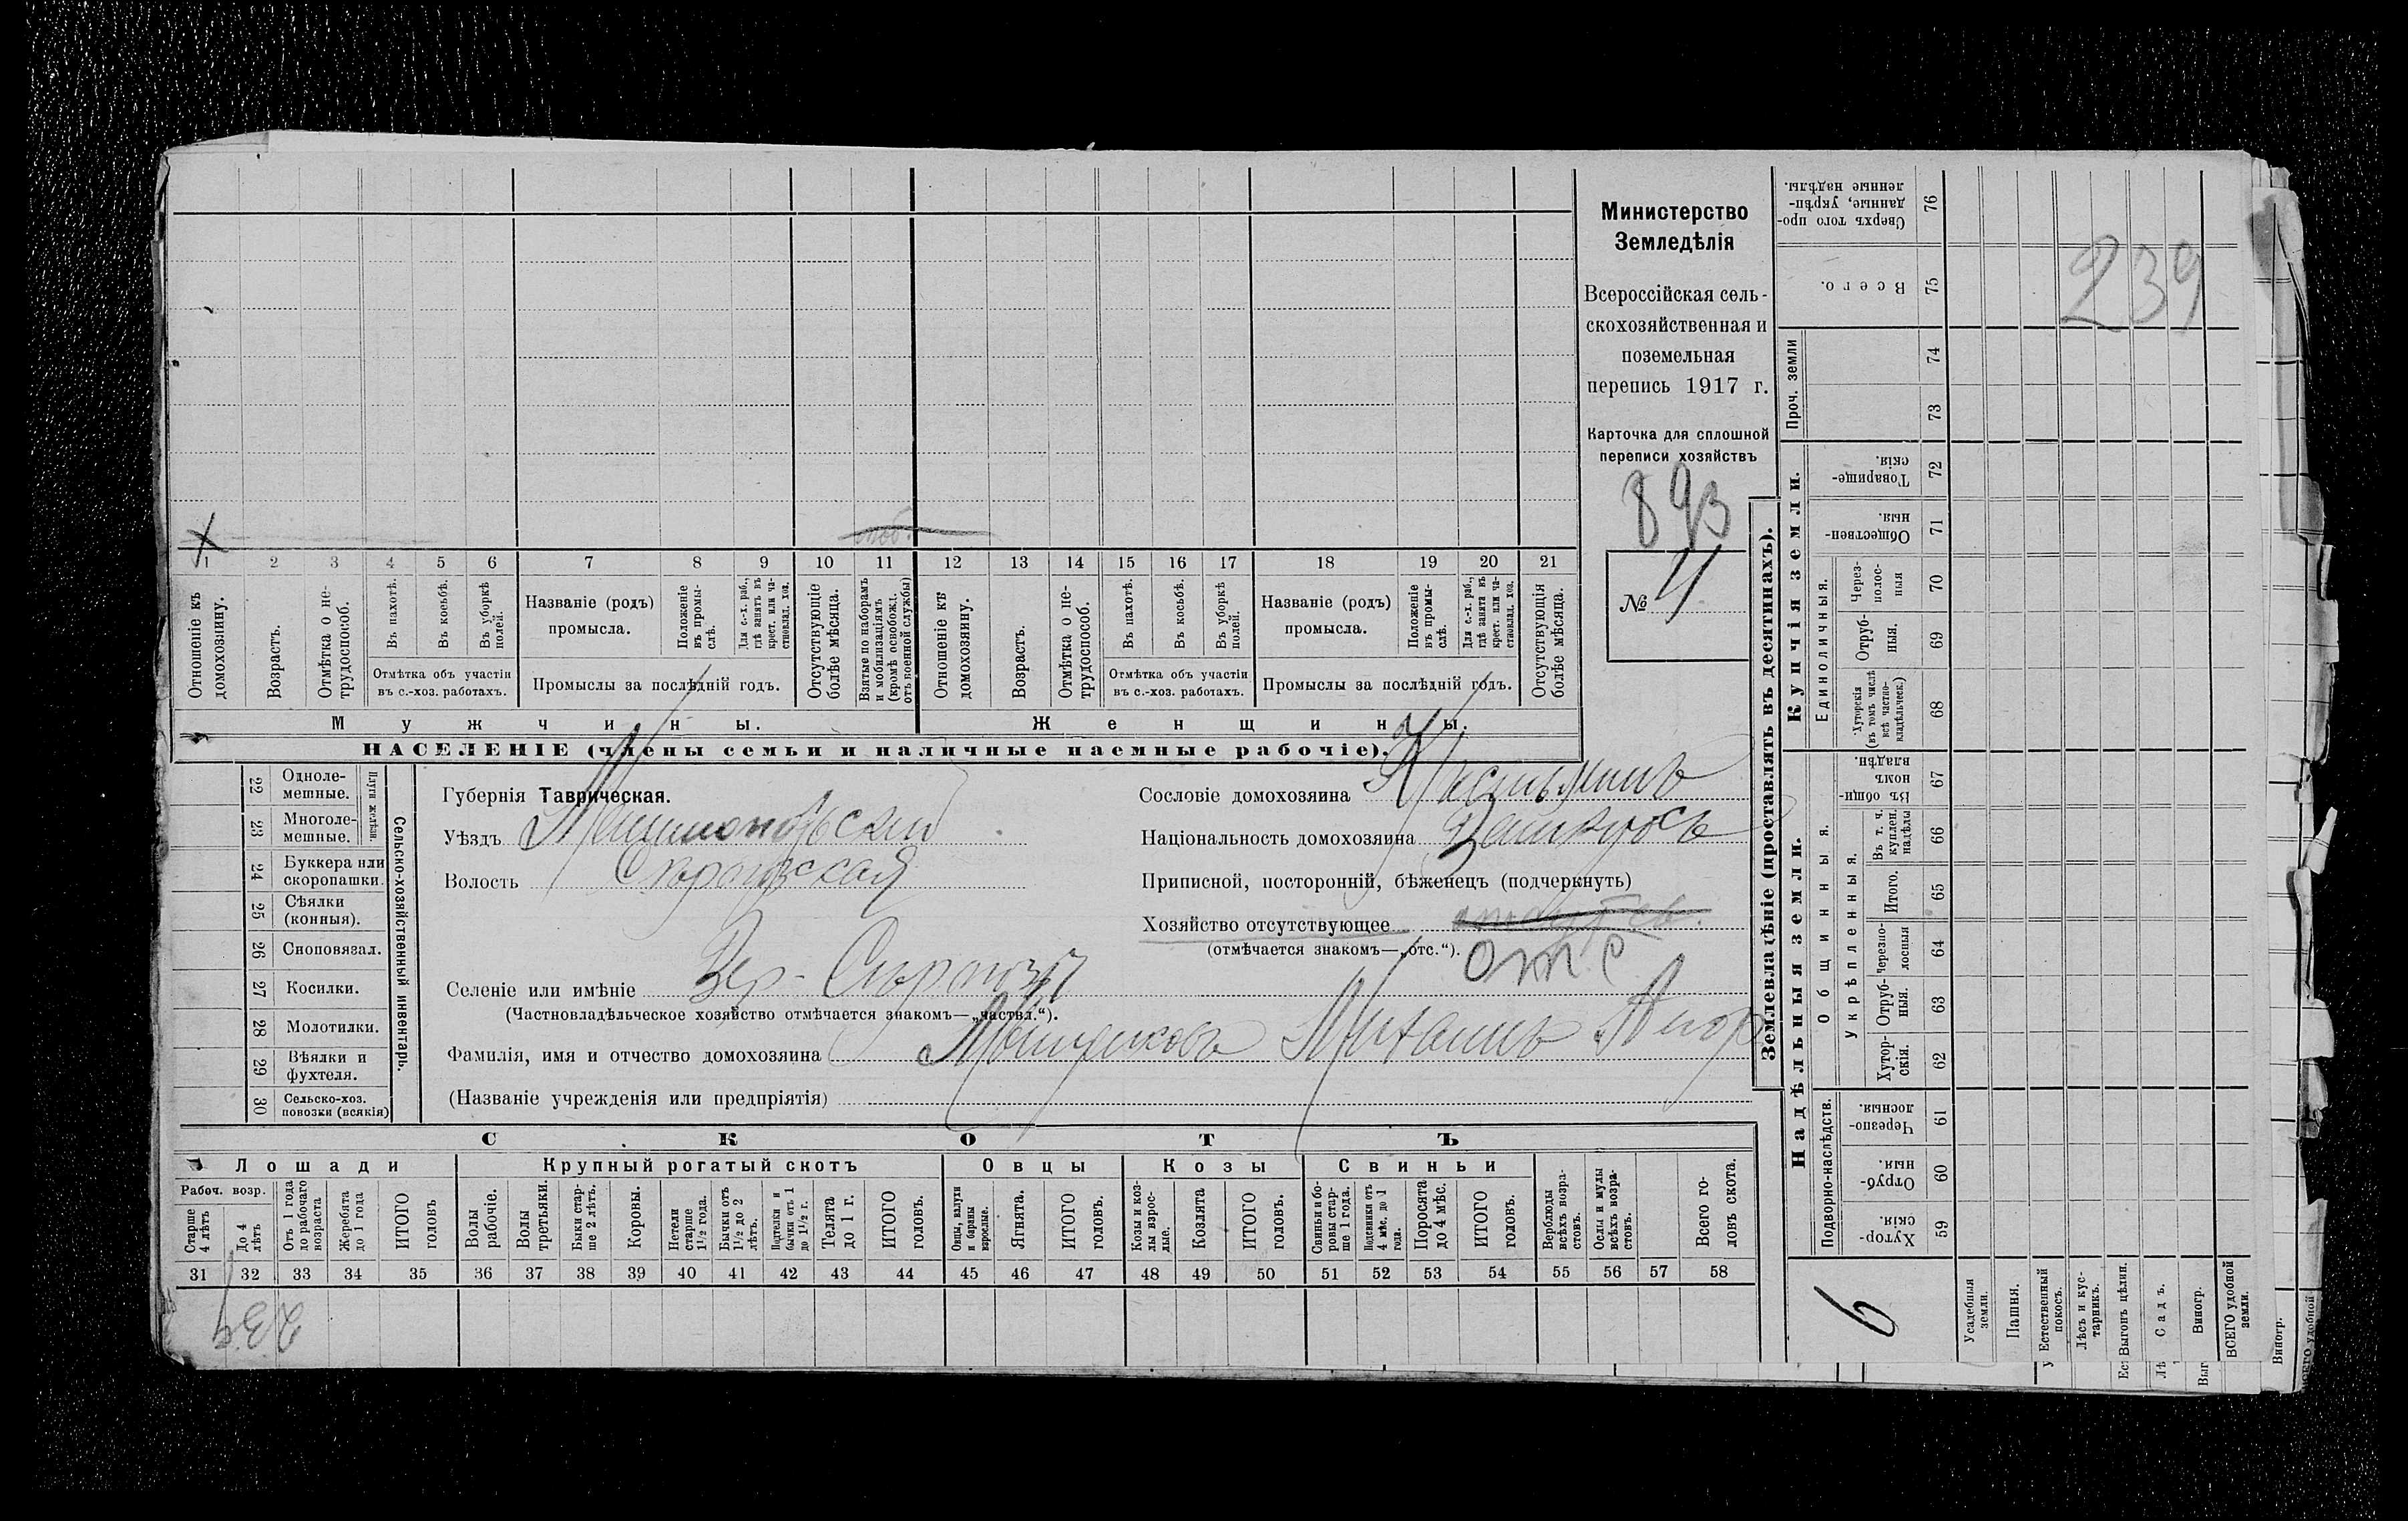 Министерство
Земледѣлія
Всероссійская сель-
скохозяйственная и
поземельная
перепись 1917 г.
Карточка для сплошной
переписи хозяйствъ
893
№ 4
239
Х
1 2 3 4 5 6 7 8 9 10 11 12 13 14 15 16 17 18 19 20 21
Отношеніе къ домохозяину.
Возрастъ.
Отмѣтка о не-трудоспособ.
Въ пахотѣ.
Въ косьбѣ.
Въ уборкѣ полей.
Отмѣтка объ участіи
въ с.-хоз. работахъ.
Названіе (родъ)
промысла.
Положеніе въ промы-слѣ.
Для с.-х. раб., гдѣ занятъ въ крест. или ча-стновлад. хоз.
Промыслы за послѣдній годъ.
Отсутствующіе болѣе мѣсяца.
Взятые по наборамъ и мобилизаціямъ (кромѣ освобожд. отъ военной службы)
Отношеніе къ домохозяину.
Возрастъ.
Отмѣтка о не-трудоспособ.
Въ пахотѣ.
Въ косьбѣ.
Въ уборкѣ полей.
Отмѣтка объ участіи
въ с.-хоз. работахъ.
Названіе (родъ)
промысла.
Положеніе въ промы-слѣ.
Для с.-х. раб., гдѣ занята въ крест. или ча-стновлад. хоз.
Промыслы за послѣдній годъ.
Отсутствующія болѣе мѣсяца.
Мужчины.
Женщины.
НАСЕЛЕНІЕ (члены семьи и наличные наемные рабочіе).
22 Одноле-мешные.
23 Многоле-мешные.
Плуги желѣзн.
24 Буккера или скоропашки.
25 Сѣялки (конныя).
26 Сноповязал.
27 Косилки.
28 Молотилки.
29 Вѣялки и фухтеля.
30 Сельско-хоз. повозки (всякія)
Сельско-хозяйственный инвентарь.
Губернія Таврическая.
Уѣздъ Мелитопольский
Волость
Селеніе или имѣніе Вер-
(Частновладѣльческое хозяйство отмѣчается знакомъ—„частвл.“).
Фамилія, имя и отчество домохозяина
(Названіе учрежденія или предпріятія)
Сословіе домохозяина
Національность домохозяина
Приписной, посторонній, бѣженецъ (подчеркнуть)
Хозяйство отсутствующее
(отмѣчается знакомъ—„отс.“). отс
СКОТЪ
Лошади
Крупный рогатый скотъ
Овцы
Козы
Свиньи
Рабоч. возр.
Старше 4 лѣтъ
До 4 лѣтъ
Отъ 1 года до рабочаго возраста
Жеребята до 1 года
ИТОГО головъ
Волы рабочіе.
Волы третьяки.
Быки стар-ше 2 лѣтъ.
Коровы.
Нетели старше 1½ года.
Бычки отъ 1½ до 2 лѣтъ.
Подтелки и бычки отъ 1 до 1½ г.
Телята до 1 г.
ИТОГО головъ.
Овцы, валухи и бараны взрослые.
Ягнята.
ИТОГО головъ.
Козы и коз-лы взрос-лые.
Козлята
ИТОГО головъ.
Свиньи и бо-ровы стар-ше 1 года.
Подсвинки отъ 4 мѣс. до 1 года.
Поросята до 4 мѣс.
ИТОГО головъ.
Верблюды всѣхъ возра-стовъ.
Ослы и мулы всѣхъ возра-стовъ.
Всего го-ловъ скота.
31 32 33 34 35 36 37 38 39 40 41 42 43 44 45 46 47 48 49 50 51 52 53 54 55 56 57 58
239
Землевладѣніе (проставлять въ десятинахъ).
Купчія земли.
Надѣльныя земли.
Сверхъ того про-данные, укрѣп-ленные надѣлы. 76
Всего. 75
Проч. земли
74
73
Товарище-скія. 72
Обществен-ныя. 71
Единоличныя.
Через-полос-ныя 70
Отруб-ныя. 69
Хуторскія (въ томъ числѣ всѣ частно-владѣльческ.) 68
Общинныя.
Въ общин-номъ владѣн. 67
Укрѣпленныя.
Въ т. ч. куплен. надѣлы 66
Итого. 65
Черезпо-лосныя 64
Отруб-ныя. 63
Хутор-скія. 62
Подворно-наслѣдств.
Черезпо-лосныя. 61
Отруб-ныя. 60
Хутор-скія. 59
6
Усадебныя земли.
Пашня.
Естественный покосъ.
Лѣсъ и кус-тарникъ.
Выгонъ цѣлин.
Садъ.
Виногр.
ВСЕГО удобной земли.
Виногр.